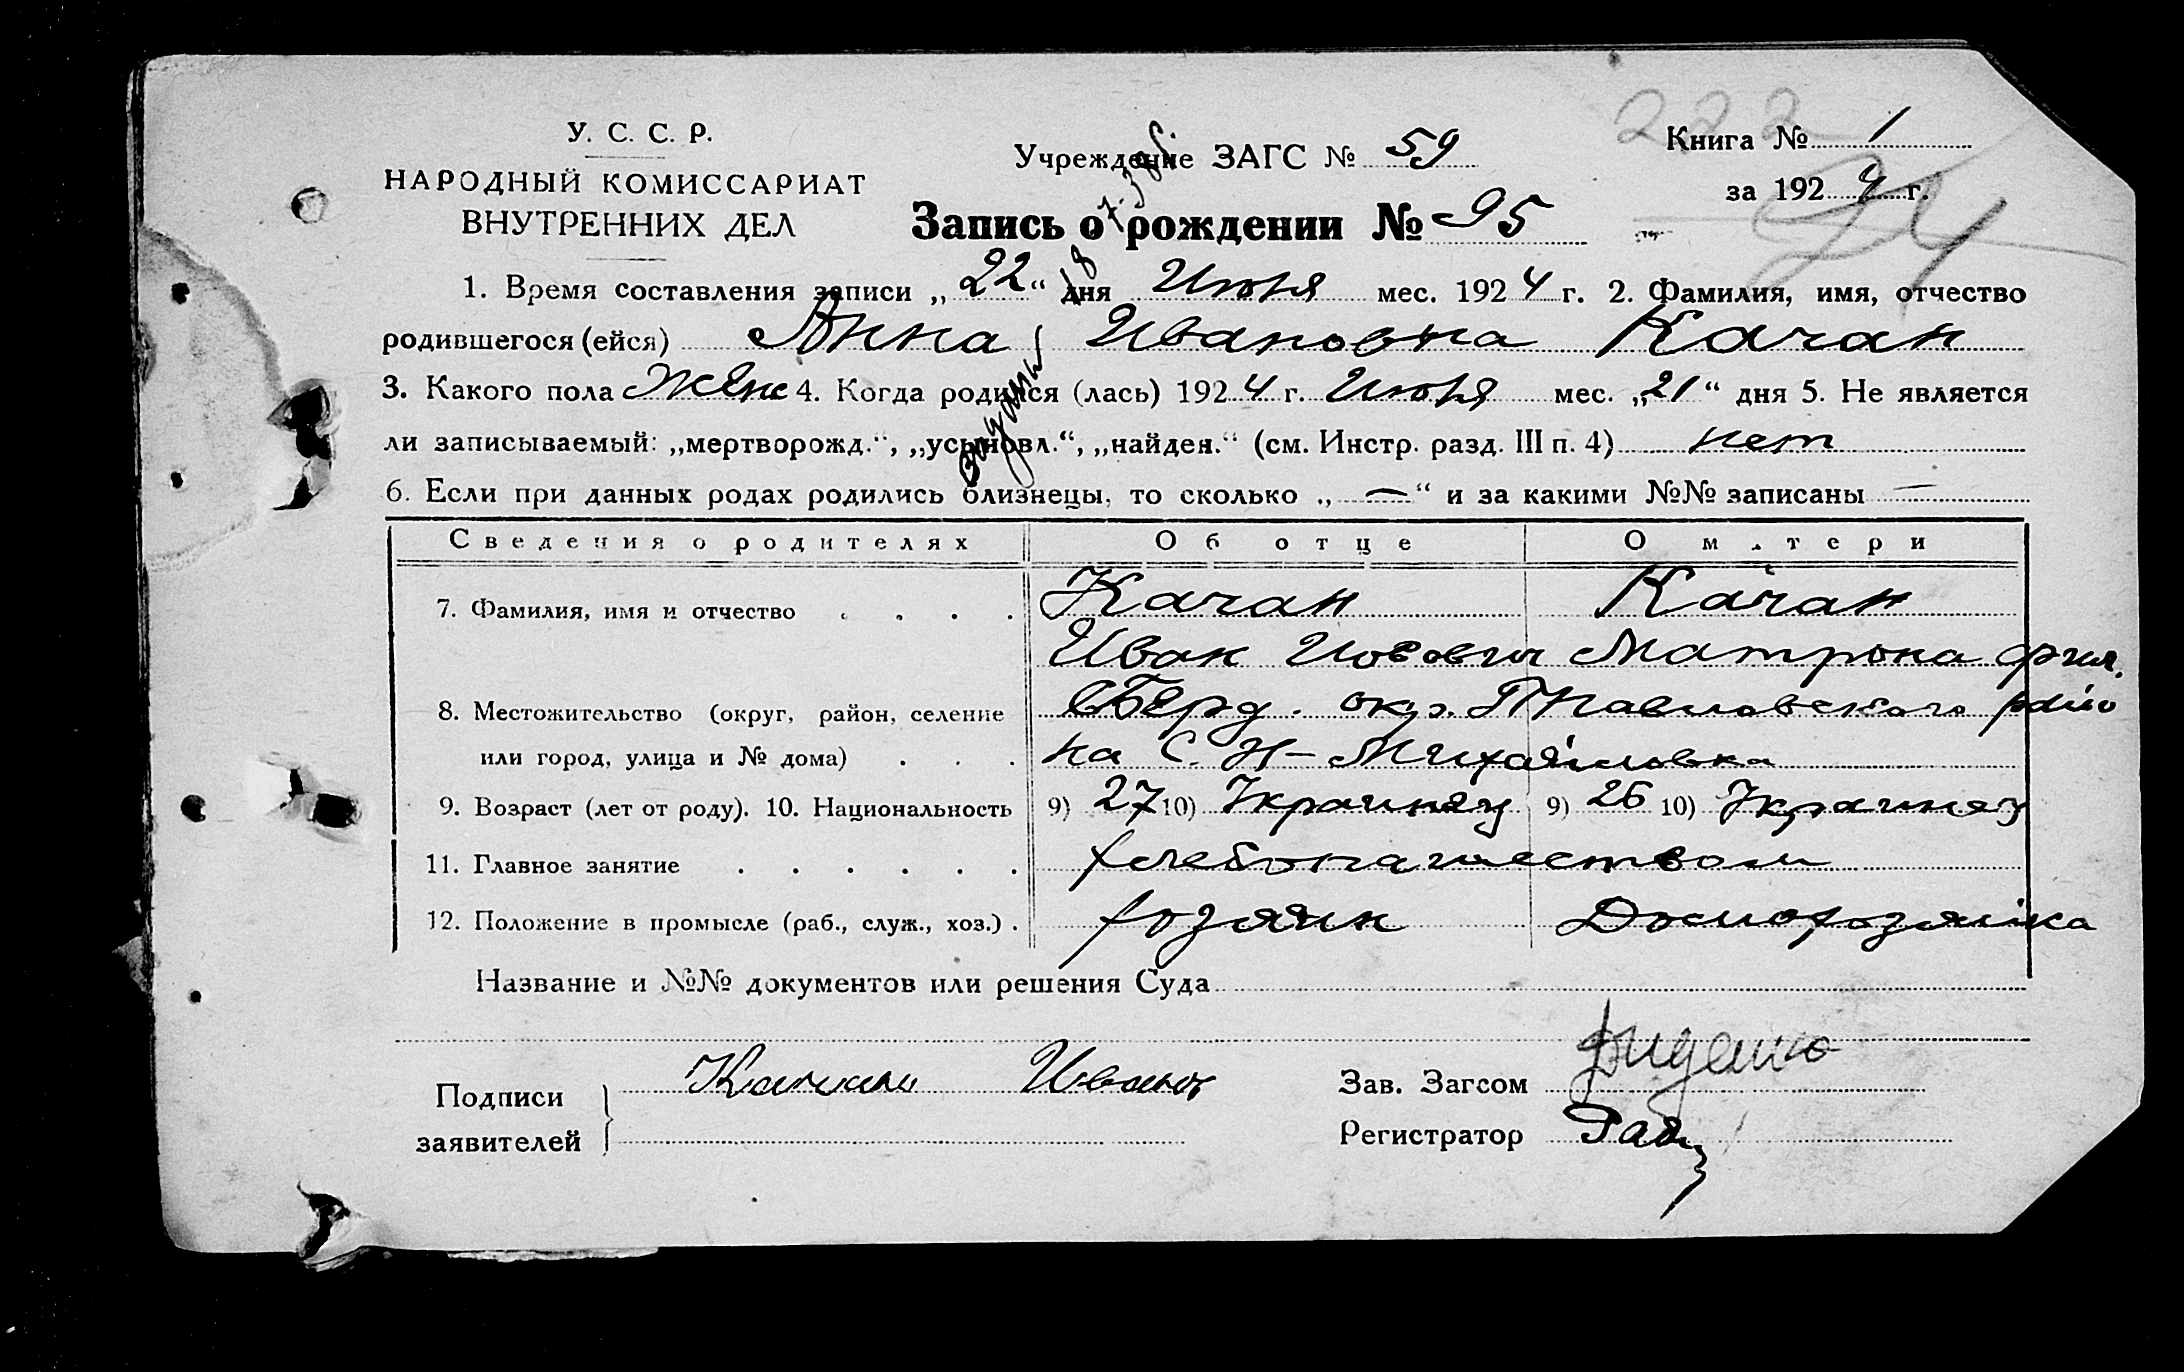 У. С. С. Р.
НАРОДНЫЙ КОМИССАРИАТ
ВНУТРЕННИХ ДЕЛ
Учреждение ЗАГС № 59
Книга № 1
за 1924 г.
222
Запись о рождении № 95
1. Время составления записи „22“ дня Июня мес. 1924 г. 2. Фамилия, имя, отчество
родившегося (ейся) Анна Ивановна Качан
3. Какого пола Жен 4. Когда родился (лась) 1924 г. Июня мес. „21“ дня 5. Не является
ли записываемый: „мертворожд.“, „усыновл.“, „найден.“ (см. Инстр. разд. III п. 4) нет
6. Если при данных родах родились близнецы, то сколько „—“ и за какими №№ записаны —
Сведения о родителях Об отце О матери
7. Фамилия, имя и отчество . . . . Качан Качан
Иван Иовович Матрона Фил.
8. Местожительство (округ, район, селение Берд. окр. Павловского райо
или город, улица и № дома) . . . на С. Н-Михайловка
9. Возраст (лет от роду). 10. Национальность 9) 27 10) Украинец 9) 26 10) Украинец
11. Главное занятие . . . . . . хлебопашеством
12. Положение в промысле (раб., служ., хоз.) . хозяин Домохозяйка
Название и №№ документов или решения Суда
Подписи
заявителей
Качан Иван
Зав. Загсом
Регистратор